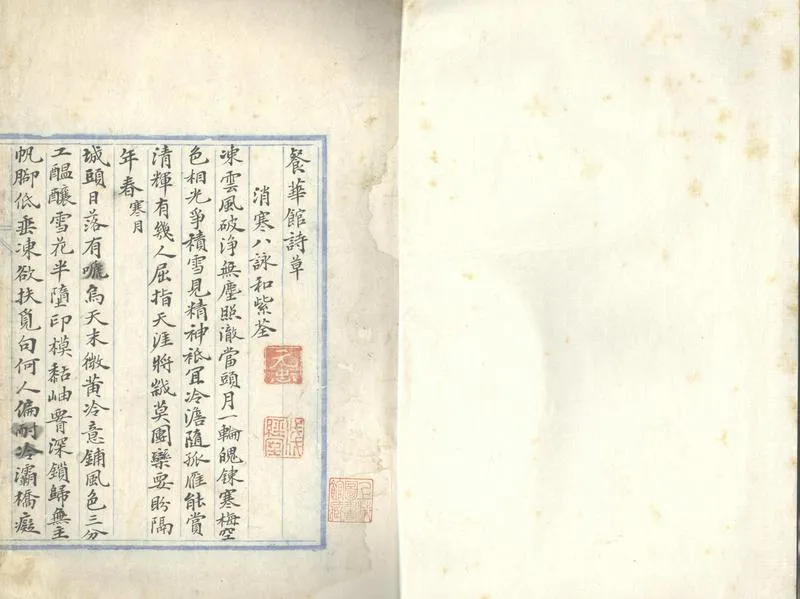 餐華館詩草
消寒八詠和紫荃
凍雲風破淨無塵照澈當頭月一輪魄鍊寒梅空
色相光爭積雪見精神祗宜冷澹隨孤雁能賞
清輝有幾人屈指天涯將歲莫團欒要盼隔
年春寒月
城頭日落有嘅烏天末微黄冷意鋪風色三分
工醞釀雪花半墮印模黏岫睂深鎖歸無主
帆腳低垂凍欲扶覓句何人偏耐冷灞橋癡
元忠